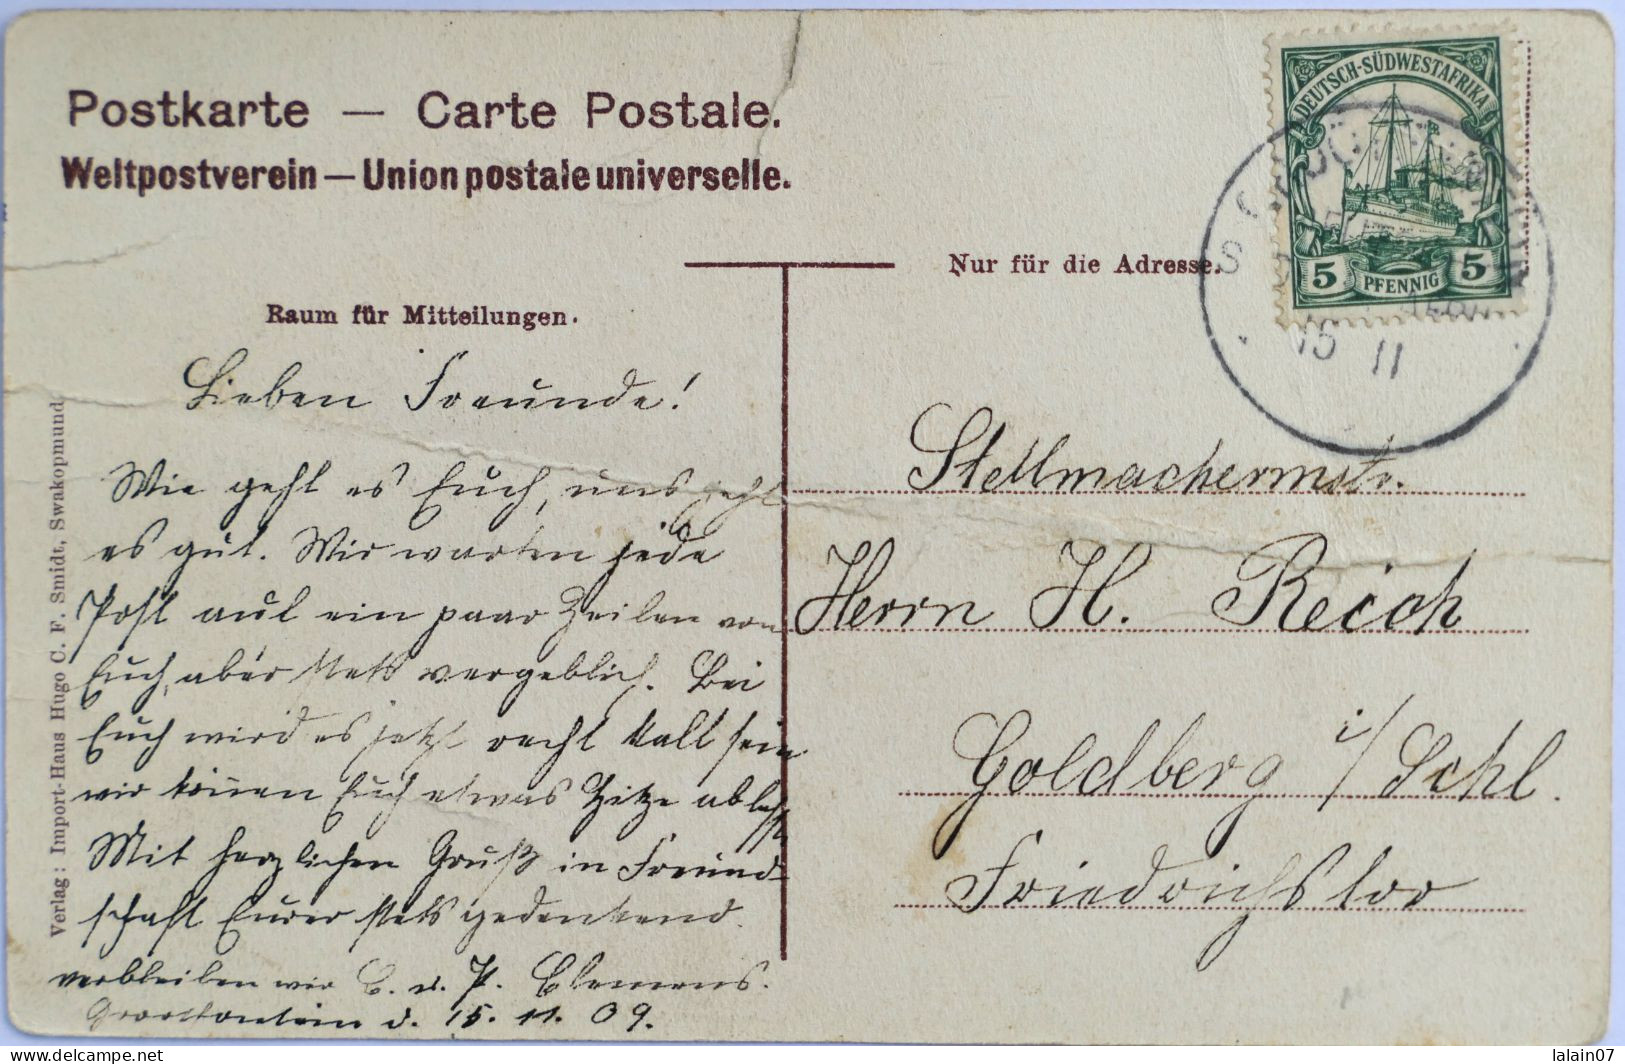 Postkarte — Carte Postale.
Weltpostverein — Union postale universelle.
DEUTSCH-SÜDWESTAFRIKA
5 PFENNIG 5
15 11
Nur für die Adresse.
Raum für Mitteilungen.
Lieben Freunde!
Wie geht es Euch, uns geht
es gut. Wir warten jede
Post auf ein paar Zeilen von
Euch, aber stets vergeblich. Bei
Euch wird es jetzt recht kalt sein
wir können Euch etwas Hitze
Mit herzlichen Gruß in Freund-
schaft Eurer stets gedenkend
verbleiben wir C. u. P. Clemens.
Grootfontein d. 15. 11. 09.
Stellmachermstr.
Herrn H. Reich
Goldberg i/Schl.
Friedrichstor
Verlag: Import-Haus Hugo C. F. Smidt, Swakopmund.
delcampe.net
lalain07